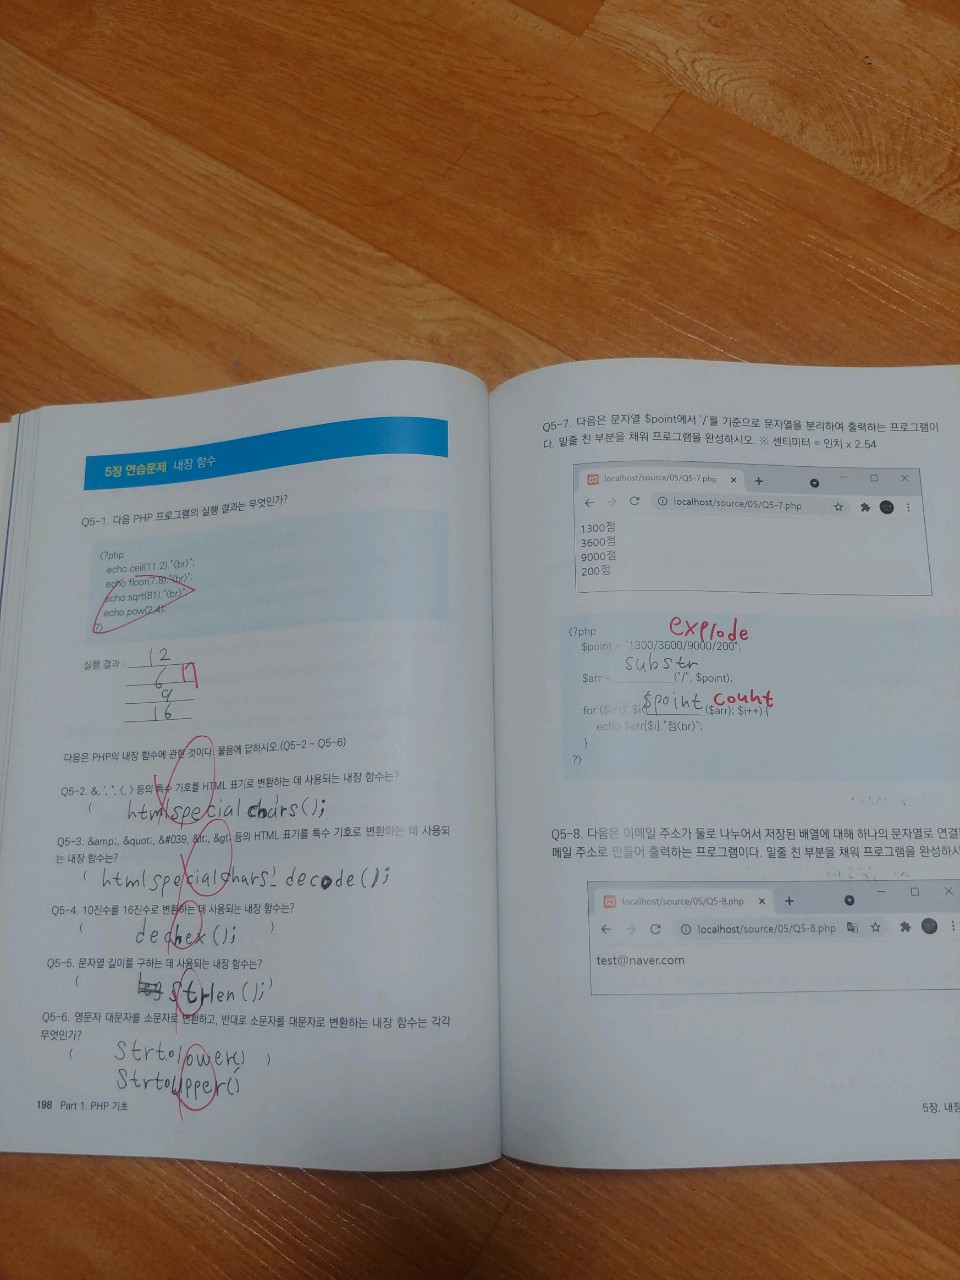 5장 연습문제 내장 함수
Q5-1. 다음 PHP 프로그램의 실행 결과는 무엇인가?
<?php
echo ceil(11.2)."<br>";
echo floor(7.8)."<br>";
echo sqrt(81)."<br>";
echo pow(2,4);
?>
실행 결과 :
12
6 7
9
16
다음은 PHP의 내장 함수에 관한 것이다. 물음에 답하시오.(Q5-2 ~ Q5-6)
Q5-2. &, ', ", <, > 등의 특수 기호를 HTML 표기로 변환하는 데 사용되는 내장 함수는?
( htmlspecialchars();
Q5-3. &amp;, &quot;, &#039, &lt;, &gt; 등의 HTML 표기를 특수 기호로 변환하는 데 사용되
는 내장 함수는?
( htmlspecialchars_decode();
Q5-4. 10진수를 16진수로 변환하는 데 사용되는 내장 함수는?
( dechex(); )
Q5-5. 문자열 길이를 구하는 데 사용되는 내장 함수는?
( strlen(); )
Q5-6. 영문자 대문자를 소문자로 변환하고, 반대로 소문자를 대문자로 변환하는 내장 함수는 각각
무엇인가?
( Strtolower() )
Strtoupper()
198 Part 1. PHP 기초
Q5-7. 다음은 문자열 $point에서 '/'를 기준으로 문자열을 분리하여 출력하는 프로그램이
다. 밑줄 친 부분을 채워 프로그램을 완성하시오. ※ 센티미터 = 인치 x 2.54
localhost/source/05/Q5-7.php
localhost/source/05/Q5-7.php
1300점
3600점
9000점
200점
<?php
explode
$point = "1300/3600/9000/200";
substr
$arr = ("/", $point);
$point count
for ($i=0; $i< ($arr); $i++) {
echo $arr[$i]."점<br>";
}
?>
Q5-8. 다음은 이메일 주소가 둘로 나누어서 저장된 배열에 대해 하나의 문자열로 연결
메일 주소로 만들어 출력하는 프로그램이다. 밑줄 친 부분을 채워 프로그램을 완성하시
localhost/source/05/Q5-8.php
localhost/source/05/Q5-8.php
test@naver.com
5장. 내장